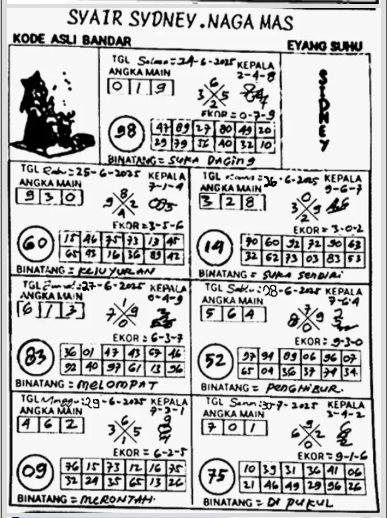 SYAIR SYDNEY.NAGA MAS
KODE ASLI BANDAR
EYANG SUHU
TGL Selasa = 24-6-2025 KEPALA
ANGKA MAIN 2-4-8
0 1 9
6
3 X 5
2
EKOR = 0-7-9
98
47 89 27 80 49 20
29 79 56 40 32 10
BINATANG = SUKA DAGING
SIDNEY
TGL Rabu = 25-6-2025 KEPALA
ANGKA MAIN 7-1-4
9 3 0
8
9 X 2
4
EKOR = 3-5-6
60
15 46 75 73 13 45
65 43 16 36 89 42
BINATANG = KELUYURAN
TGL Kamis = 26-6-2025 KEPALA
ANGKA MAIN 9-6-7
3 2 8
0
3 X 9
2
EKOR = 3-0-2
14
70 60 92 72 90 63
32 62 73 03 83 53
BINATANG = SUKA SENDIRI
TGL 27-6-2025 KEPALA
ANGKA MAIN 0-4-9
6 1 3
1
7 X 9
0
EKOR = 6-3-7
83
36 01 47 43 67 46
92 40 97 61 13 96
BINATANG = MELOMPAT
TGL Sabtu = 28-6-2025 KEPALA
ANGKA MAIN 7-6-4
5 6 4
7
8 X 9
0
EKOR = 9-3-0
52
97 94 89 06 96 07
65 04 36 37 74 34
BINATANG = PENGHIBUR.
TGL Minggu = 29-6-2025 KEPALA
ANGKA MAIN 7-3-1
4 6 2
3
6 X 5
1
EKOR = 6-2-5
09
76 15 73 12 16 75
32 24 35 65 13 26
BINATANG = MERONTAH
TGL Senin = 30-7-2025 KEPALA
ANGKA MAIN 3-4-2
7 0 1
6
9 X 2
0
EKOR = 9-1-6
75
10 39 31 36 41 06
21 46 49 29 96 26
BINATANG = DI PUKUL